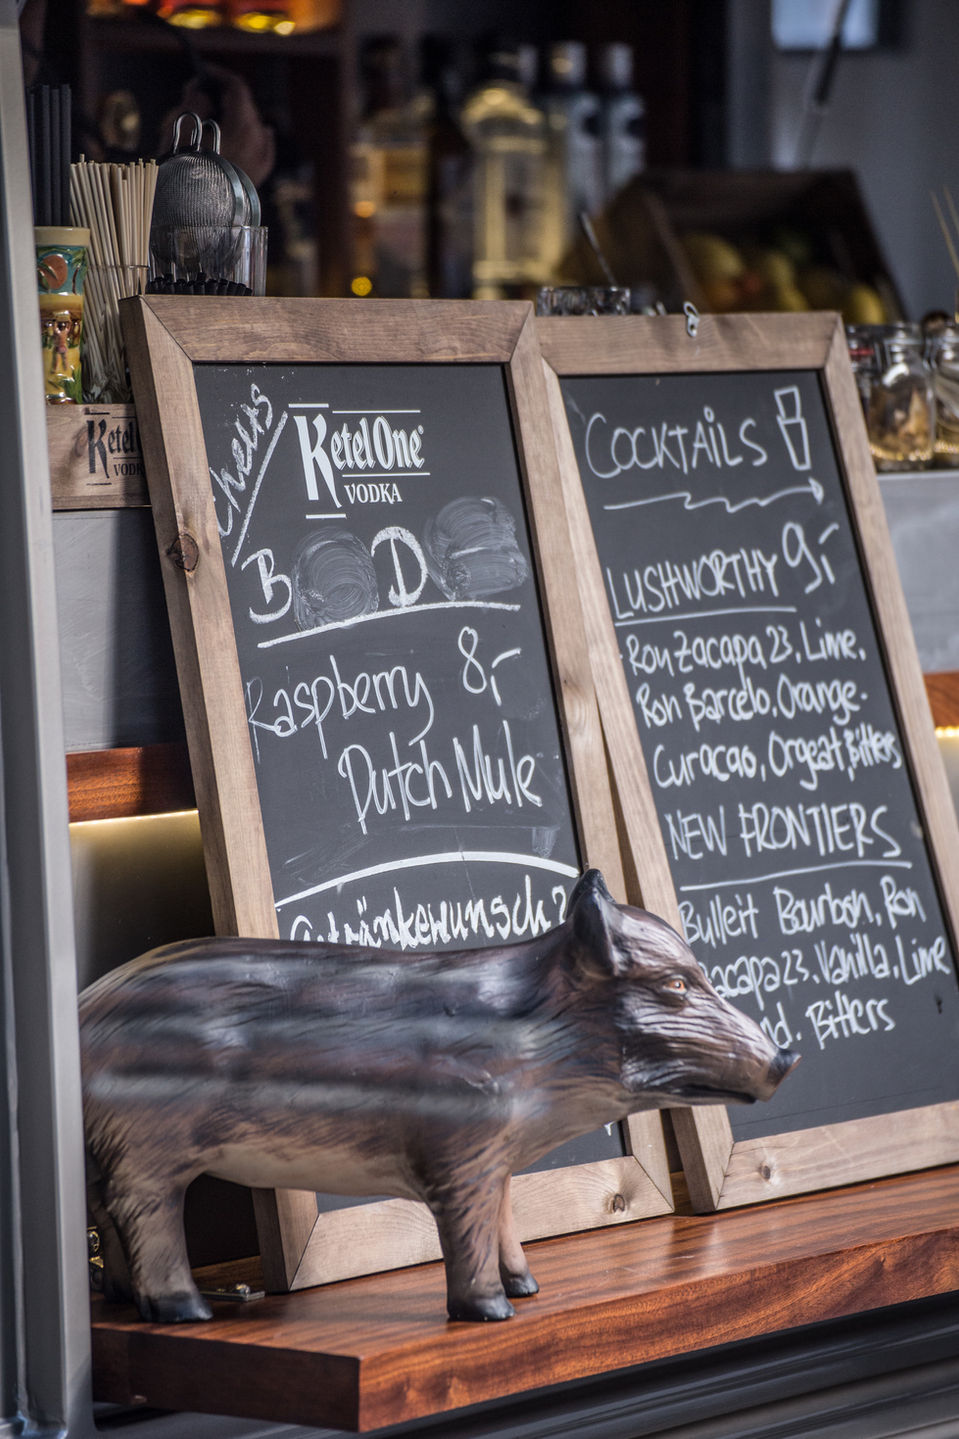 Cheers
Ketel One
VODKA
B D
Raspberry 8,-
Dutch Mule
Getränkewunsch?
Ketel
VODK
COCKTAiLS
LUSHWORTHY 9,-
Ron Zacapa 23, Lime,
Ron Barcelo, Orange-
Curacao, Orgeat, Bitters
NEW FRONTIERS
Bulleit Bourbon, Ron
acapa 23, Vanilla, Lime
nd. Bitters